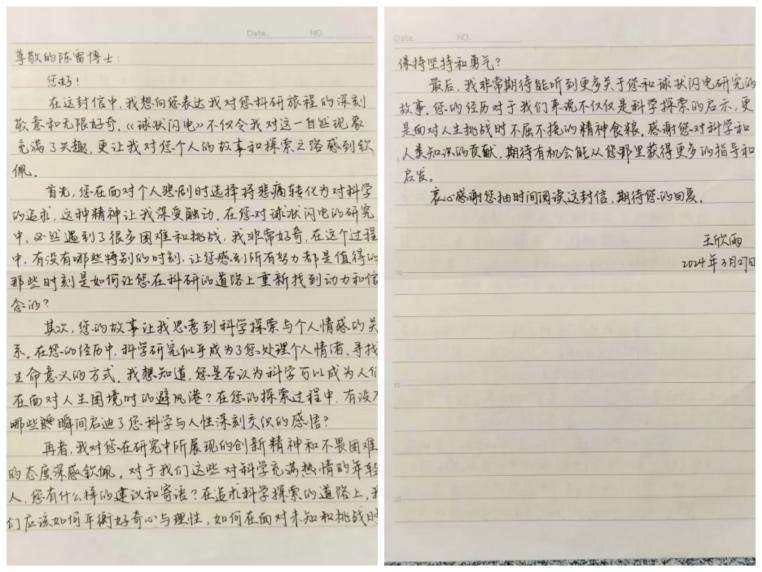 Date. NO.
尊敬的陈雷博士:
您好!
在这封信中,我想向您表达我对您科研旅程的深刻
敬意和无限好奇。《球状闪电》不仅令我对这一自然现象
充满了兴趣,更让我对您个人的故事和探索之路感到钦
佩。
首先,您在面对个人悲剧时选择将悲痛转化为对科学
的追求,这种精神让我深受触动。在您对球状闪电的研究
中,必然遇到了很多困难和挑战,我非常好奇,在这个过程
中,有没有哪些特别的时刻,让您感到所有努力都是值得的
那些时刻是如何让您在科研的道路上重新找到动力和信
念的?
其次,您的故事让我思考到科学探索与个人情感的关
系。在您的经历中,科学研究似乎成为了您处理个人情绪、寻找
生命意义的方式。我想知道,您是否认为科学可以成为人们
在面对人生困境时的避风港?在您的探索过程中,有没有
哪些瞬间启迪了您科学与人性深刻交织的感悟?
再者,我对您在研究中所展现的创新精神和不畏困难
的态度深感钦佩。对于我们这些对科学充满热情的年轻
人,您有什么样的建议和寄语?在追求科学探索的道路上,我
们应该如何平衡好奇心与理性,如何在面对未知和挑战时
Date. NO.
保持坚持和勇气?
最后,我非常期待能听到更多关于您和球状闪电研究的
故事。您的经历对于我们来说不仅仅是科学探索的启示,更
是面对人生挑战时不屈不挠的精神食粮。感谢您对科学和
人类知识的贡献,期待有机会能从您那里获得更多的指导和
启发。
衷心感谢您抽时间阅读这封信,期待您的回复。
王欣雨
2024年3月27日